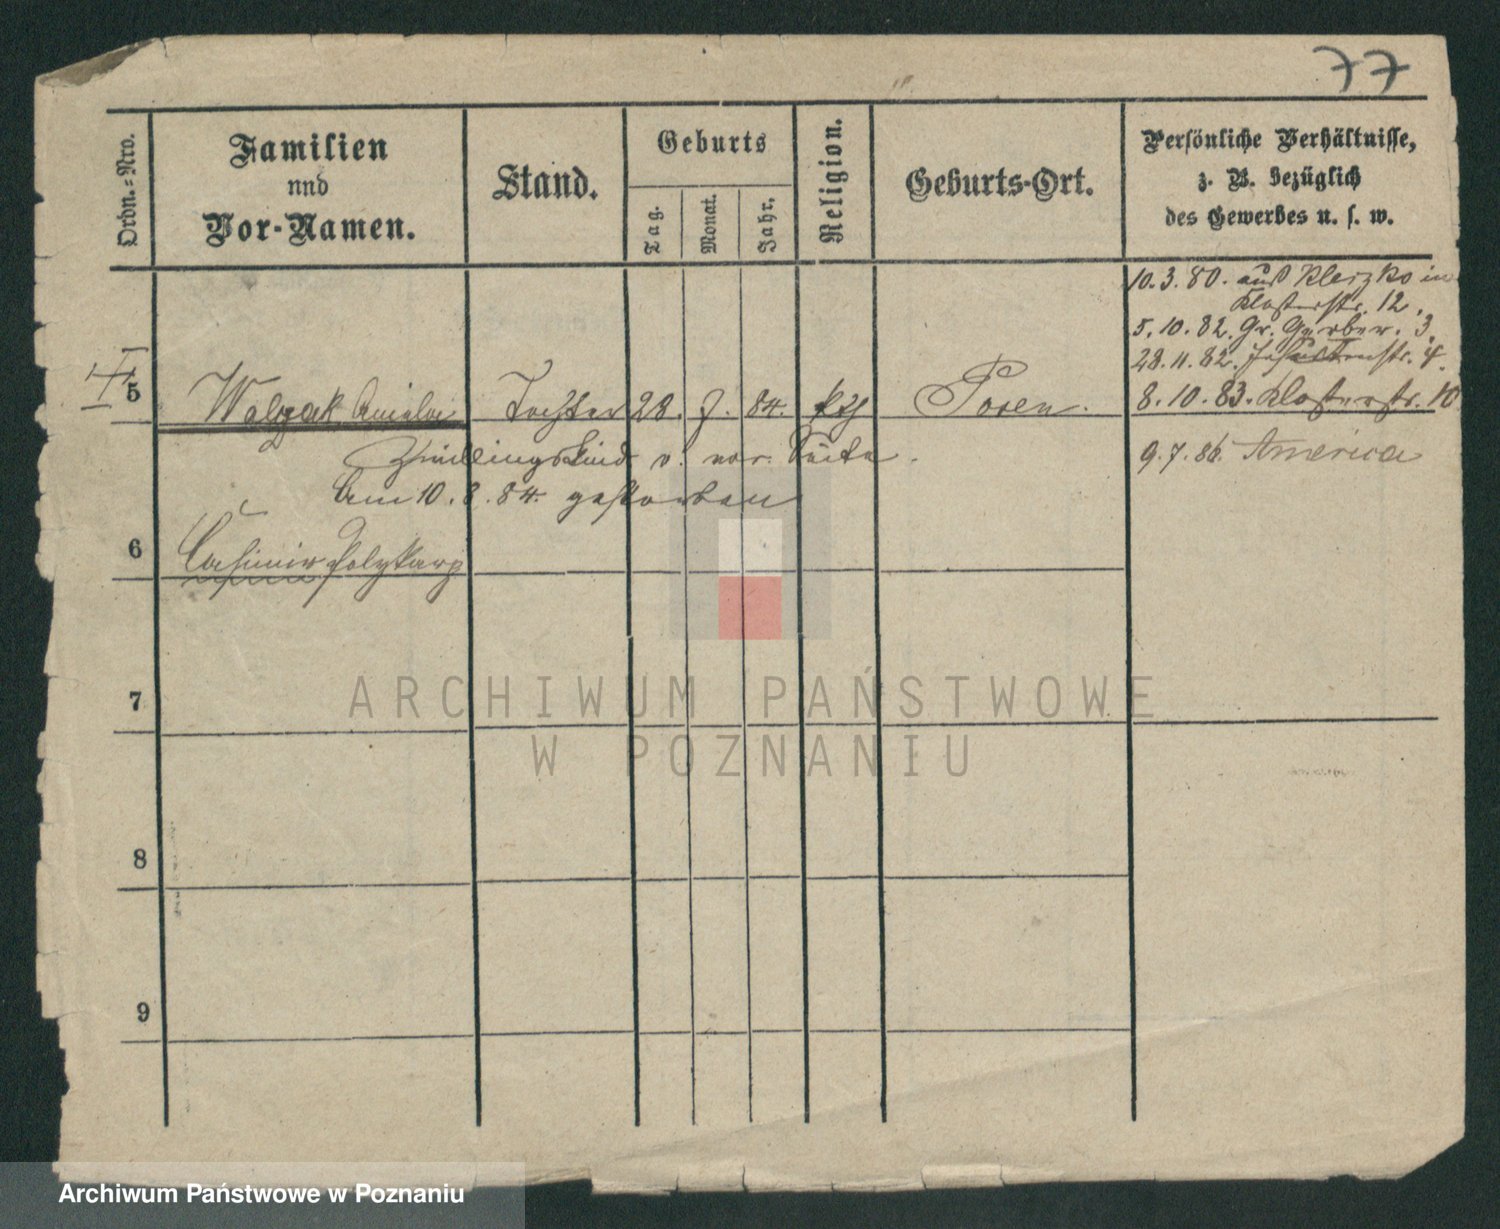 77
Ordn.=Nro.
Familien
und
Vor-Namen.
Stand.
Geburts
Tag.
Monat.
Jahr.
Religion.
Geburts-Ort.
Persönliche Verhältnisse,
z. B. bezüglich
des Gewerbes u. s. w.
10.3.80. aus Kleczko in
Klosterstr. 12.
5.10.82. Gr. Gerber. 3.
28.11.82. Jesuitenstr. 4.
8.10.83. Klosterstr. 10
9.7.86. America
5
Walczak Amalia Tochter 28. 7. 84. kth Posen.
Zwillingskind v. vor. Seite.
Am 10.8.84. gestorben
6
Casimir Polykarp
7
8
9
ARCHIWUM PAŃSTWOWE
W POZNANIU
Archiwum Państwowe w Poznaniu